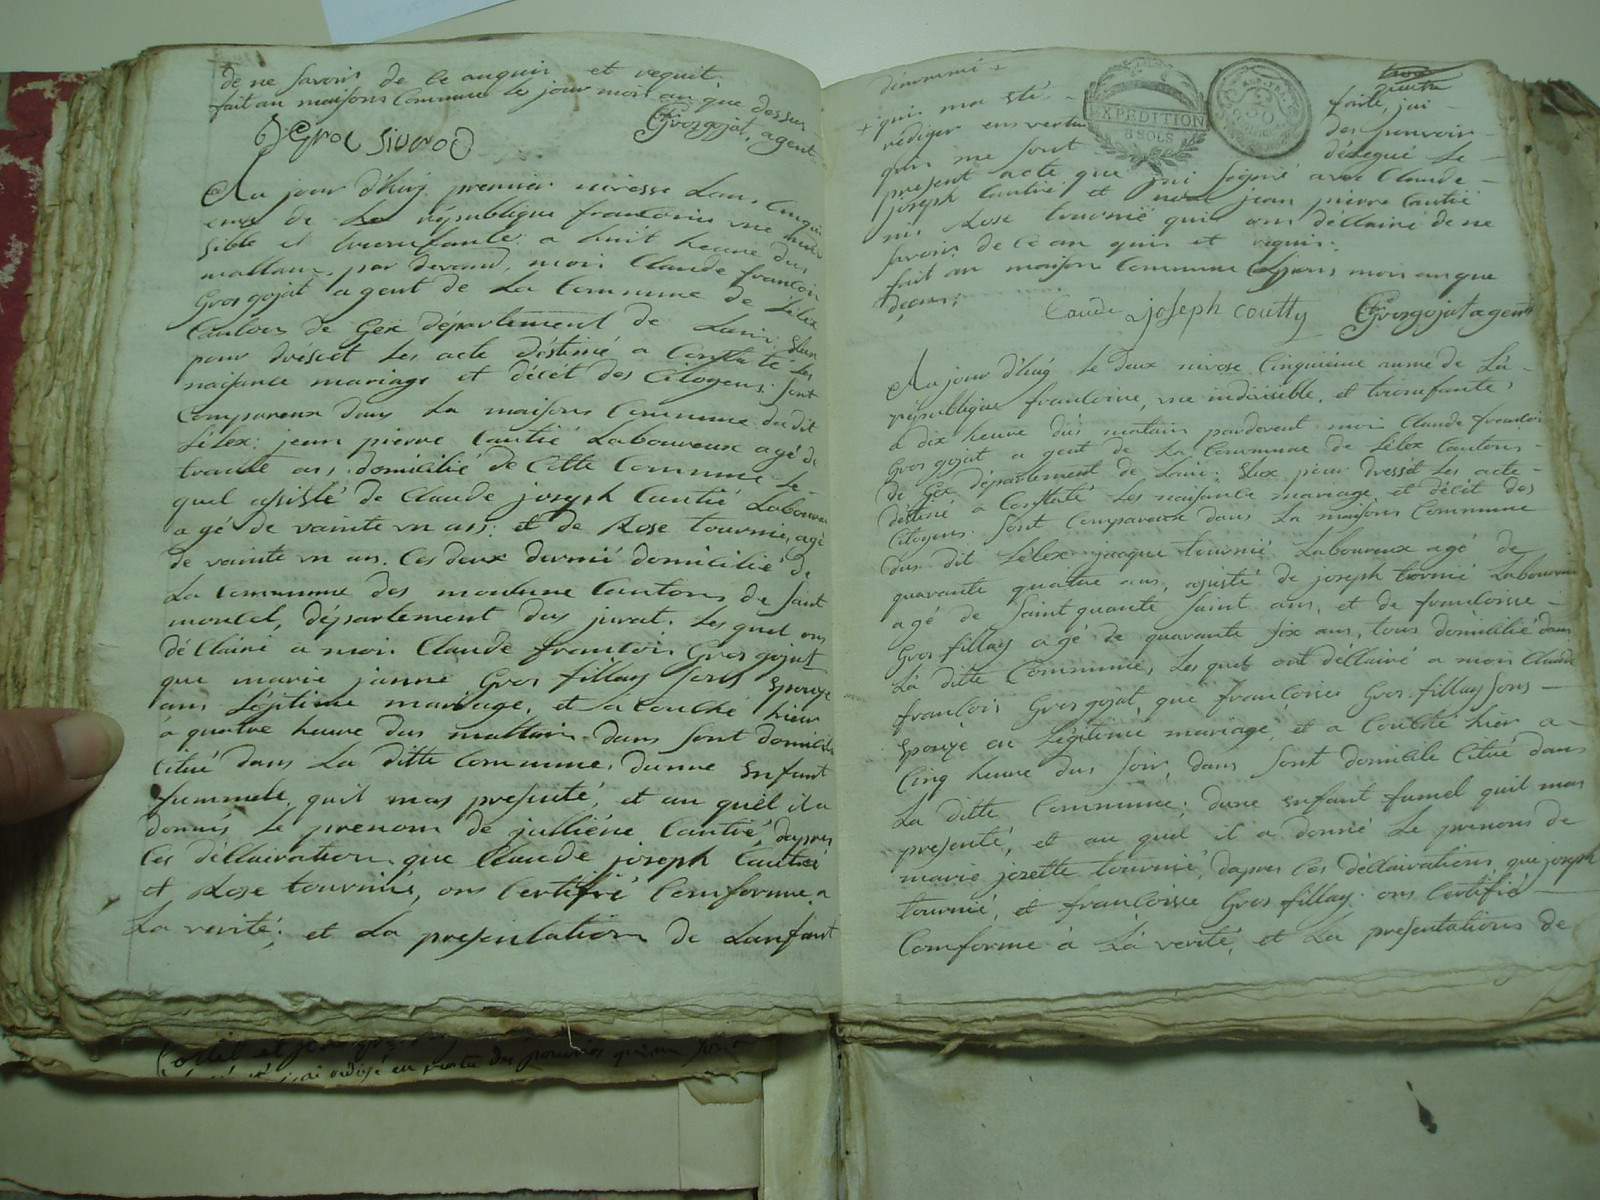 de ne savoir de ce anquir et requit.
fait au maisons Commune le jour mois an que dessus
Grosgojat, agent
Au jour d'huij premier nivosse Lans Cinqui
eme de La république francoise une indi
sible et triomfante a huit heure dus
mattain, par devand, moir Claude francoir
Grosgojat agent de La Commune de Lélex
Cantons de Gex département de Lain: Elux
pour dréscét Les acte déstimé a Constaté Les
naisance mariage et décét des Citoyens: sont
Comparreux dans La maisons Commune du dit
Lélex: jean pierre Cautié Laboureux agé de
trante ans, domicilié de Cette Commune Le-
quel assisté de Claude joseph Cautié Laboureu
agé de vainte un ans: et de Rose tournie, agé
de vainte un ans. Ces deux dernié domicilié de
La Commune des moulune Cantons de saint
moucel, département dus jurat. Les quel ons
déCllairé a moir Claude francoir Gros gojat
que marie janne Gros fillay sons Epouze
ans Légitime mariage, et acouché hier
a quatre heure dus mattain dans sont domicile
Citué dans La ditte Commune, dunne Enfant
fummele, quil mas presenté, et au quél il a
donnés Le prenom de julliéne Cautié, dapres
Ces déCllairation que Claude joseph Cautié
et Rose tournié, ons Certifié Comforme a
La verité; et La presentation de Lanfant
dénommé +
+ qui ma sté - faite, jai -
rédiger ens vertu des pouvoir -
qui me sont délegué Le -
present acte que jai signé avec Claude -
joseph Cautié et jean pierre Cautié
ni Rose tournié qui ons déCllairé de ne
savoir de Ce an quir et requir.
fait au maison Commune Les jours mois an que
deçus:
EXPEDITION
8 SOLS
Claude joseph coutty Grosgojat agent
Au jour d'huij Le deux nivose Cinquiéme année de Là -
république francoise, une indivisible, et triomfante,
a dix heure dus matain pardevent moir Claude francoir
Gros gojat agent de La Commune de Lélex Cantons -
de Gex département de Lain: Elux pour dressét Les acte -
déstiné à Constaté Les naisance mariage, et décét des
Citoyens: sont Comparreux dans La maisons Commune
dus dit Lélex jacque tournié Laboureux agé de
quarante quatre ans, assisté de joseph tournié Laboureux
agé de saint quante saint ans, et de francoisse -
Gros fillay agé de quarante six ans, tous domicilié dans
La ditte Commune, Les quel ont déCllairé a moir Claude
francoir Gros gojat, que francoise Gros fillay sons -
Epouze en Légitime mariage, et a Couché hier a -
Cinq heure dus soir, dans sont domicile Citué dans
La ditte Commune; dune Enfant fumel quil mas
presenté, et au quel il a donné Le prenons de
marie josette tournié, dapres Ces déCllairations, que joseph
tournié, et francoisse Gros fillay: ons Certifié -
Comforme à Là verité, et La presentations de